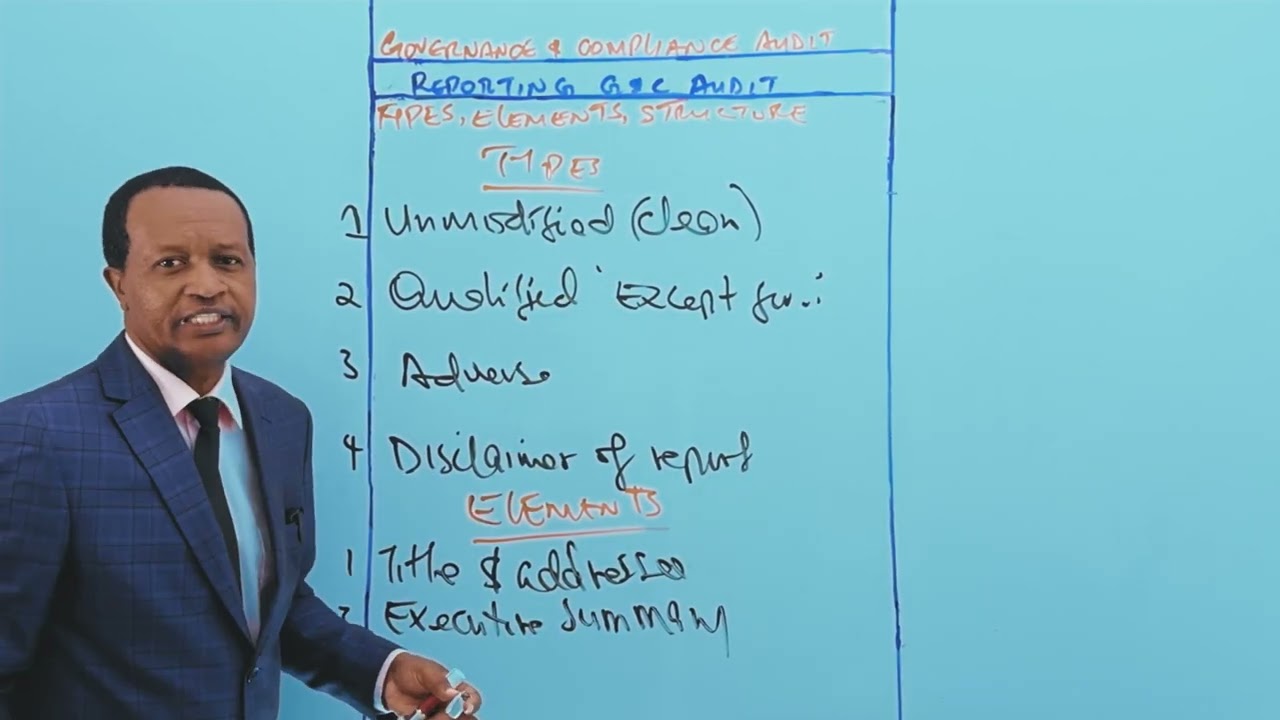 GOVERNANCE & COMPLIANCE AUDIT
REPORTING G&C AUDIT
TYPES, ELEMENTS, STRUCTURE
TYPES
1 Unmodified (Clean)
2 Qualified 'Except for..'
3 Adverse
4 Disclaimer of report
ELEMENTS
1 Title & addressee
2 Executive Summary